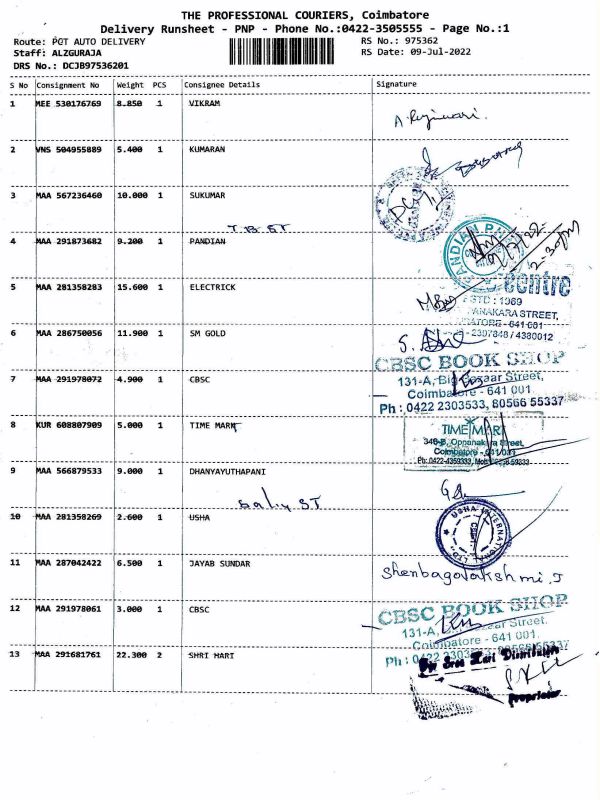 THE PROFESSIONAL COURIERS, Coimbatore
Delivery Runsheet - PNP - Phone No.:0422-3505555 - Page No.:1
Route: PGT AUTO DELIVERY RS No.: 975362
Staff: ALZGURAJA RS Date: 09-Jul-2022
DRS No.: DCJB97536201
S No Consignment No Weight PCS Consignee Details Signature
1 MEE 530176769 8.850 1 VIKRAM
2 VNS 504955889 5.400 1 KUMARAN
3 MAA 567236460 10.000 1 SUKUMAR
T.B.ST
4 MAA 291873682 9.200 1 PANDIAN
5 MAA 281358283 15.600 1 ELECTRICK
centre
ESTD : 1969
STREET,
641 001
2307848 / 4380012
6 MAA 286750056 11.900 1 SM GOLD
CBSC BOOK SHOP
7 MAA 291978072 4.900 1 CBSC
131-A, Big Bazaar Street,
Coimbatore - 641 001
Ph : 0422 2303533, 80566 55337
8 KUR 608807909 5.000 1 TIME MARK
TIME MARK
346-B, Oppanakara Street,
Coimbatore - 641 001
9 MAA 566879533 9.000 1 DHANYAYUTHAPANI
ST
10 MAA 281358269 2.600 1 USHA
USHA INTERNATIONAL LTD
11 MAA 287042422 6.500 1 JAYAB SUNDAR
Shenbagalakshmi. J
12 MAA 291978061 3.000 1 CBSC
CBSC BOOK SHOP
131-A, Bazaar Street,
Coimbatore - 641 001
13 MAA 291681761 22.300 2 SHRI HARI
Ph : 0422 55337
For Sree Hari Distributors
Proprietor